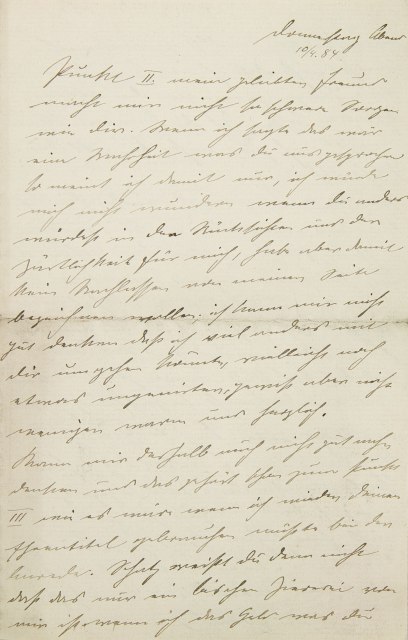 Donnerstag Abend
10/4. 84
Punkt II. mein geliebter Freund
macht mir nicht so schwere Sorgen
wie dir. Wenn ich sagte das war
eine Wahrheit was du ausgesprochen
so meint ich damit nur, ich würde
mich nicht wundern wenn du anders
würdest in den Rücksichten und der
Zärtlichkeit für mich, habe aber damit
kein Nachlassen von meiner Seite
bezeichnen wollen, ich kann mir nicht
gut denken daß ich viel anders mit
dir umgehen könnte, vielleicht noch
etwas ungenirter, gewiß aber nicht
weniger warm und herzlich.
Kann mir deshalb auch nicht gut
denken und das gehört schon zum Punkte
III wie es wäre wenn ich wieder deinen
Ehrentitel gebrauchen müßte bei der
Anrede. Schatz weißt du denn nicht
daß das nur ein bischen Ziererei von
mir ist wenn ich das Geld was du